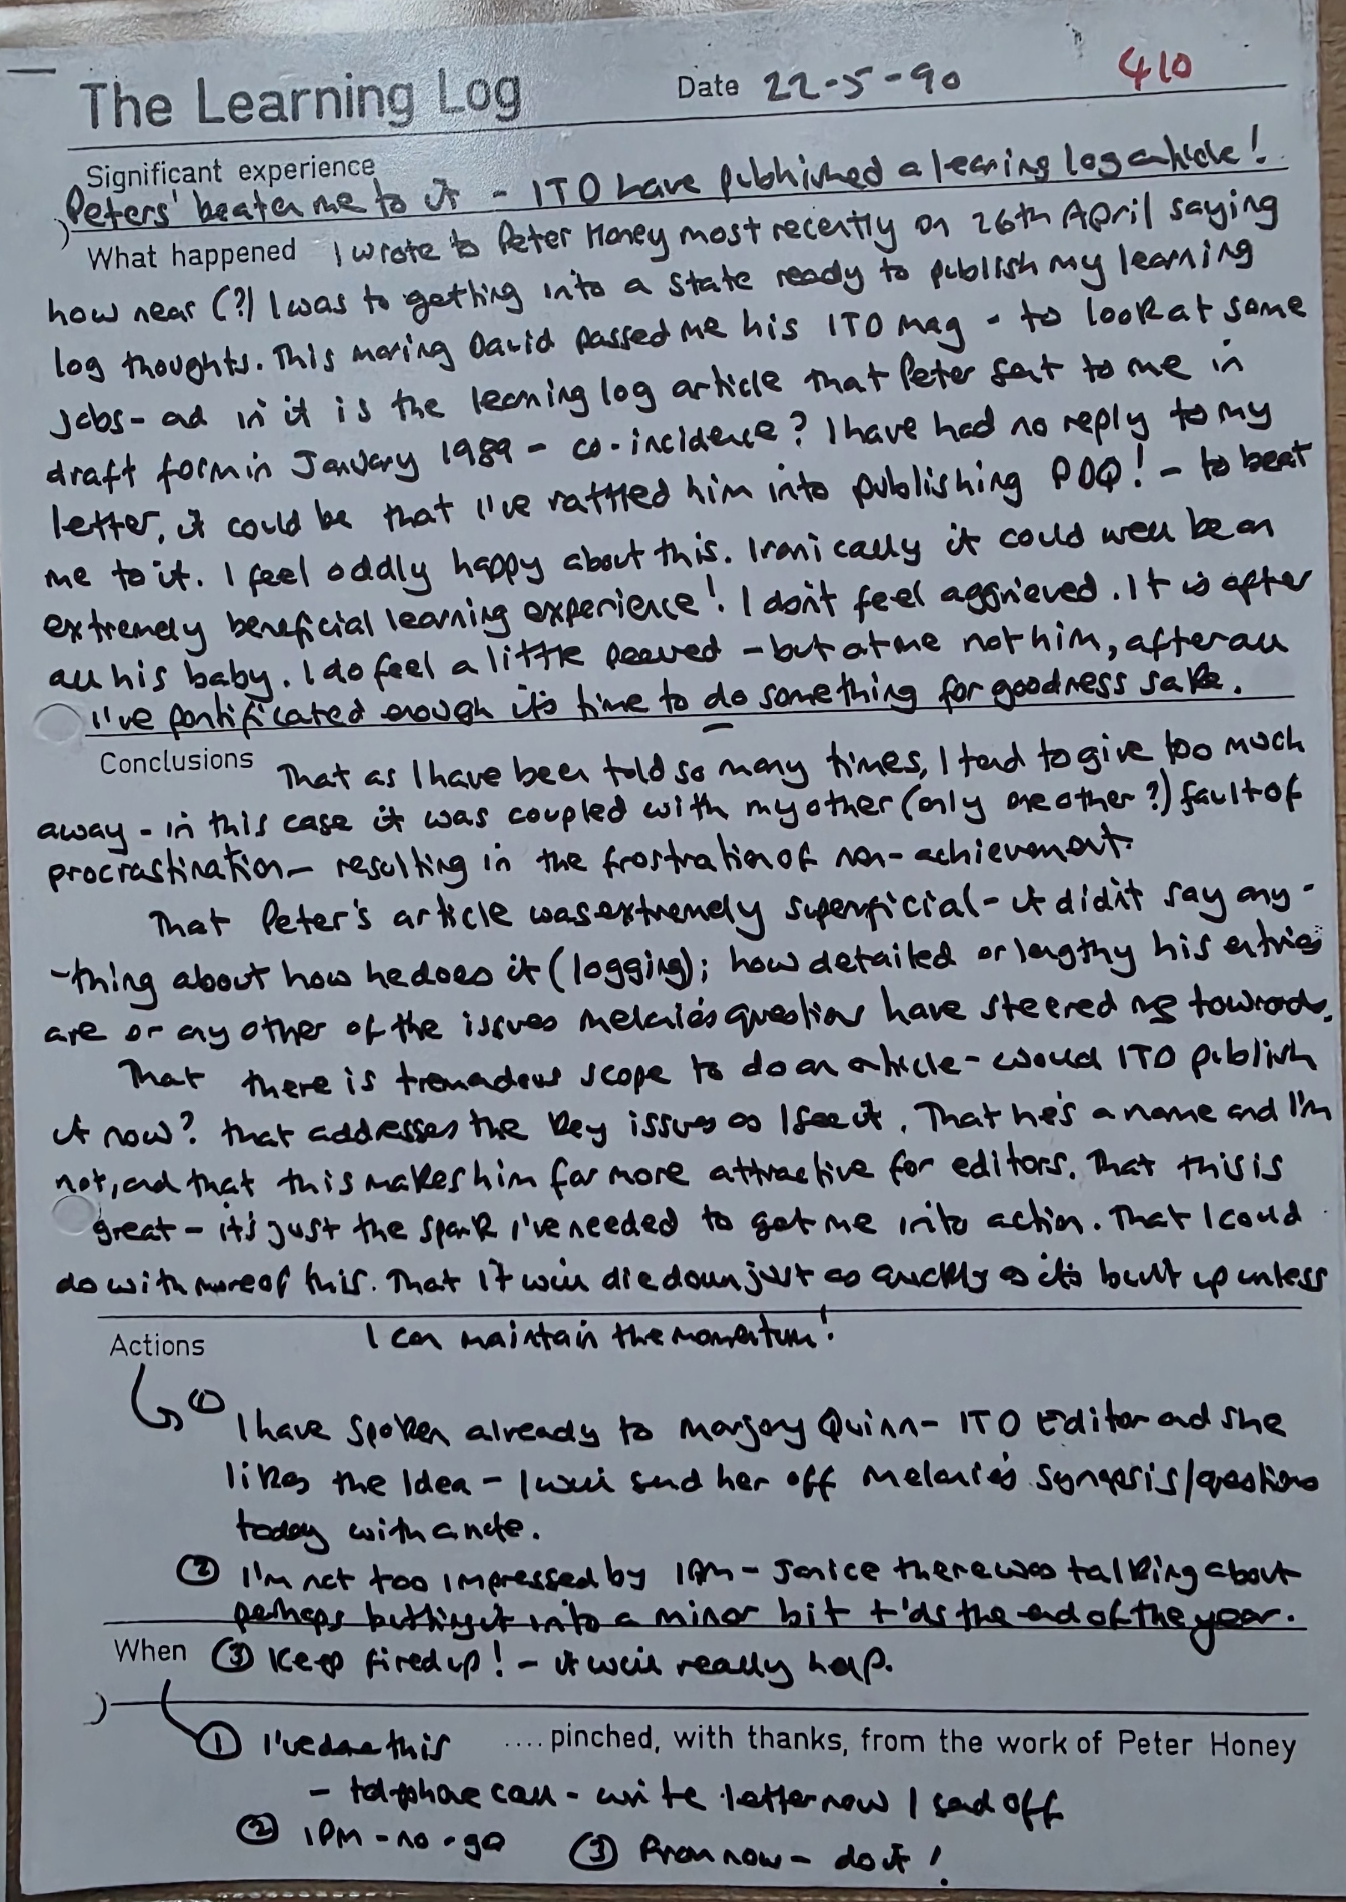 The Learning Log Date 22-5-90 410
Significant experience
Peters' beaten me to it - ITD have published a learning log article!
What happened I wrote to Peter Honey most recently on 26th April saying
how near (?) I was to getting into a state ready to publish my learning
log thoughts. This morning David passed me his ITD mag - to look at some
jobs - and in it is the learning log article that Peter sent to me in
draft form in January 1989 - co-incidence? I have had no reply to my
letter, it could be that I've rattled him into publishing PDQ! - to beat
me to it. I feel oddly happy about this. Ironically it could well be an
extremely beneficial learning experience! I don't feel aggrieved. It is after
all his baby. I do feel a little peeved - but at me not him, after all
I've pontificated enough it's time to do something for goodness sake.
Conclusions That as I have been told so many times, I tend to give too much
away - in this case it was coupled with my other (only one other?) fault of
procrastination - resulting in the frostration of non-achievement.
That Peter's article was extremely superficial - it didn't say any-
-thing about how he does it (logging); how detailed or lengthy his entries
are or any other of the issues Melanie's questions have steered me towards.
That there is tremendous scope to do an article - would ITD publish
it now? that addresses the key issues as I see it. That he's a name and I'm
not, and that this makes him far more attractive for editors. That this is
great - it's just the spark I've needed to get me into action. That I could
do with more of this. That it will die down just as quickly as it's built up unless
I can maintain the momentum!
Actions
① I have spoken already to Marjory Quinn - ITD Editor and she
likes the Idea - I will send her off Melanie's synopsis/questions
today with a note.
② I'm not too impressed by IPM - Janice there was talking about
perhaps putting it into a minor bit t'ds the end of the year.
When ③ Keep fired up! - it will really help.
① I've done this .... pinched, with thanks, from the work of Peter Honey
- telephone call - write letter now & send off
② IPM - no-go ③ From now - do it!